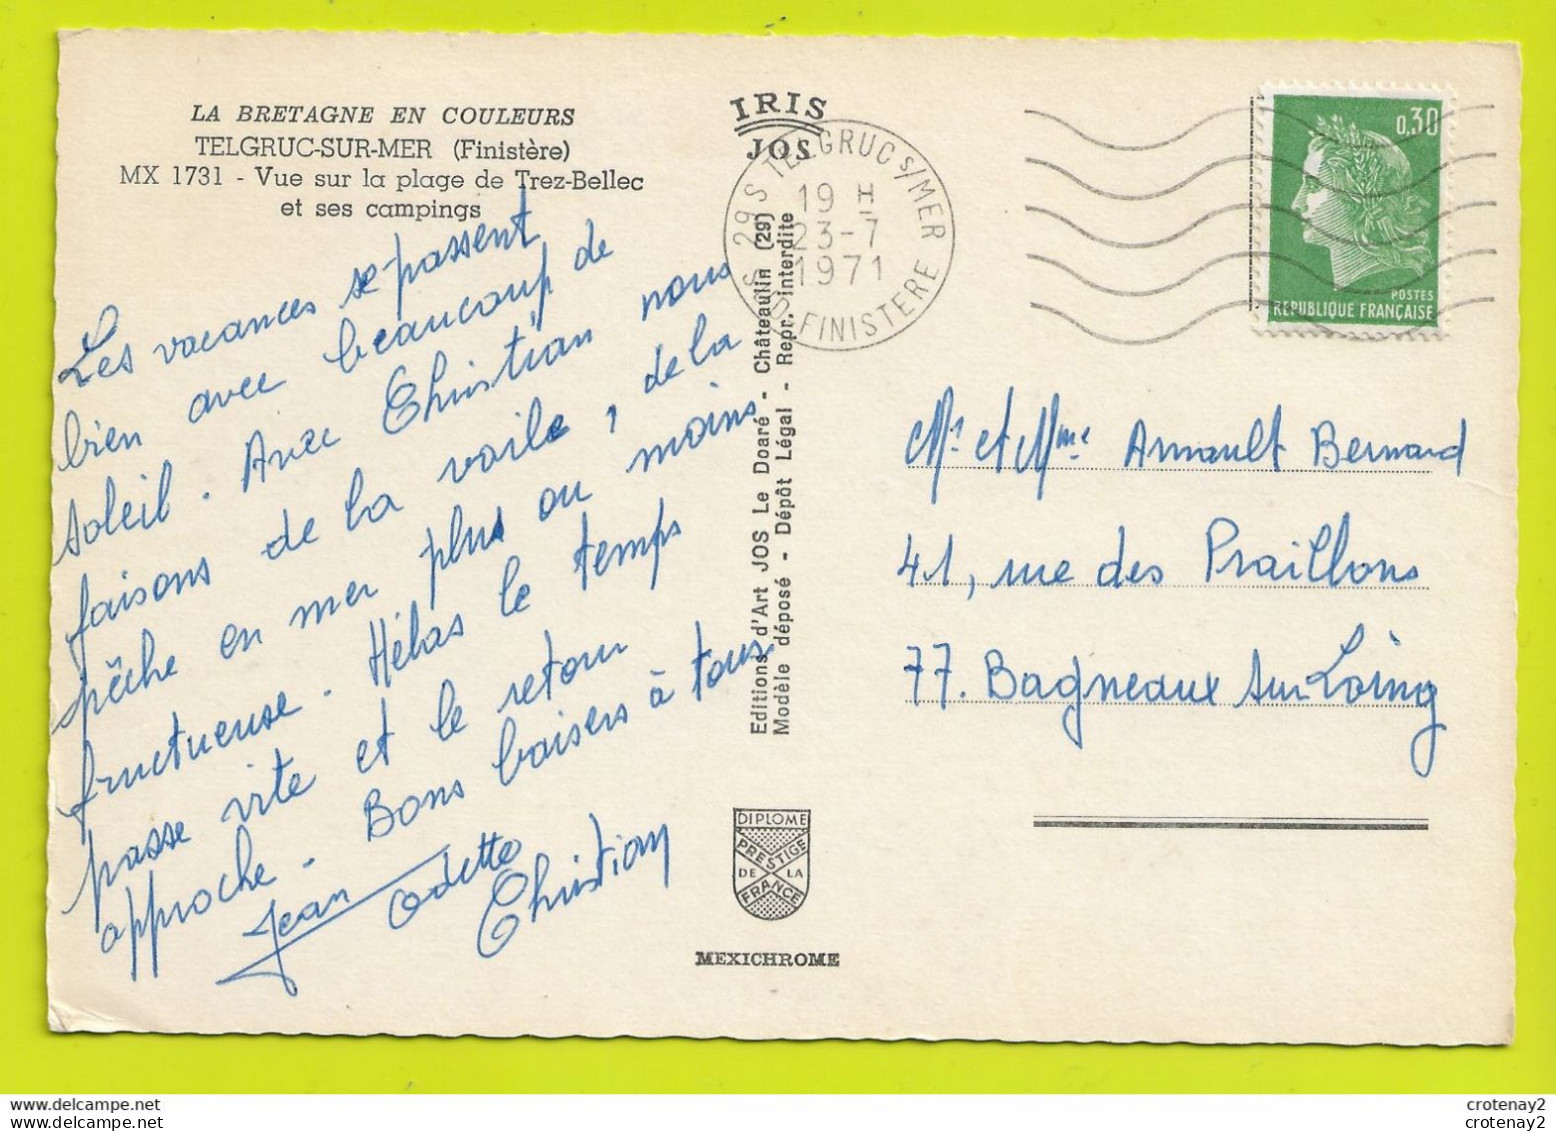 LA BRETAGNE EN COULEURS
TELGRUC-SUR-MER (Finistère)
MX 1731 - Vue sur la plage de Trez-Bellec
et ses campings
Les vacances se passent
bien avec beaucoup de
soleil. Avec Christian nous
faisons de la voile, de la
pêche en mer plus ou moins
fructueuse. Hélas le temps
passe vite et le retour
approche. Bons baisers à tous
Jean Odette
Christian
IRIS
JOS
Editions d'Art JOS Le Doaré - Châteaulin (29)
Modèle déposé - Dépôt Légal - Repr. interdite
DIPLOME
PRESTIGE
DE LA
FRANCE
MEXICHROME
29 S TELGRUC S/MER
19 H
23-7
1971
S. D. FINISTERE
0,30
POSTES
REPUBLIQUE FRANÇAISE
Mr et Mme Arnault Bernard
41, rue des Praillons
77. Bagneaux sur Loing
www.delcampe.net
crotenay2
crotenay2